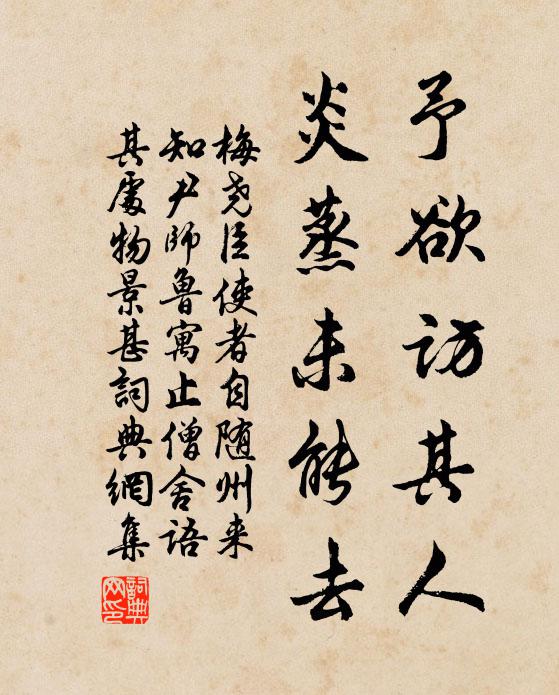 予欲访其人
炎蒸未能去
梅尧臣使者自随州来
知尹師魯寓止僧舍语
其處物景甚詞典網集
詞典
网印